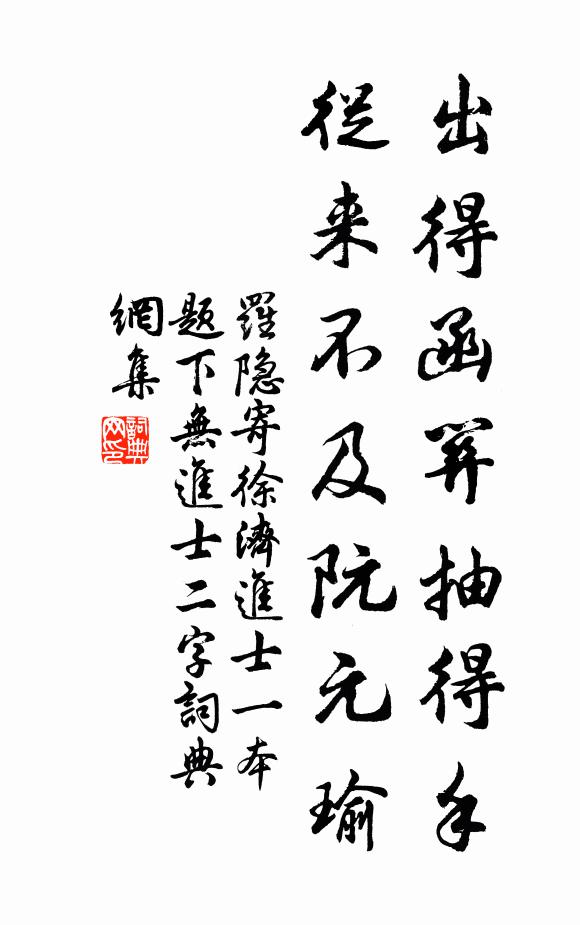 出得函關抽得手
從来不及阮元瑜
羅隐寄徐濟進士一本
題下無進士二字詞典
網集
詞典網印